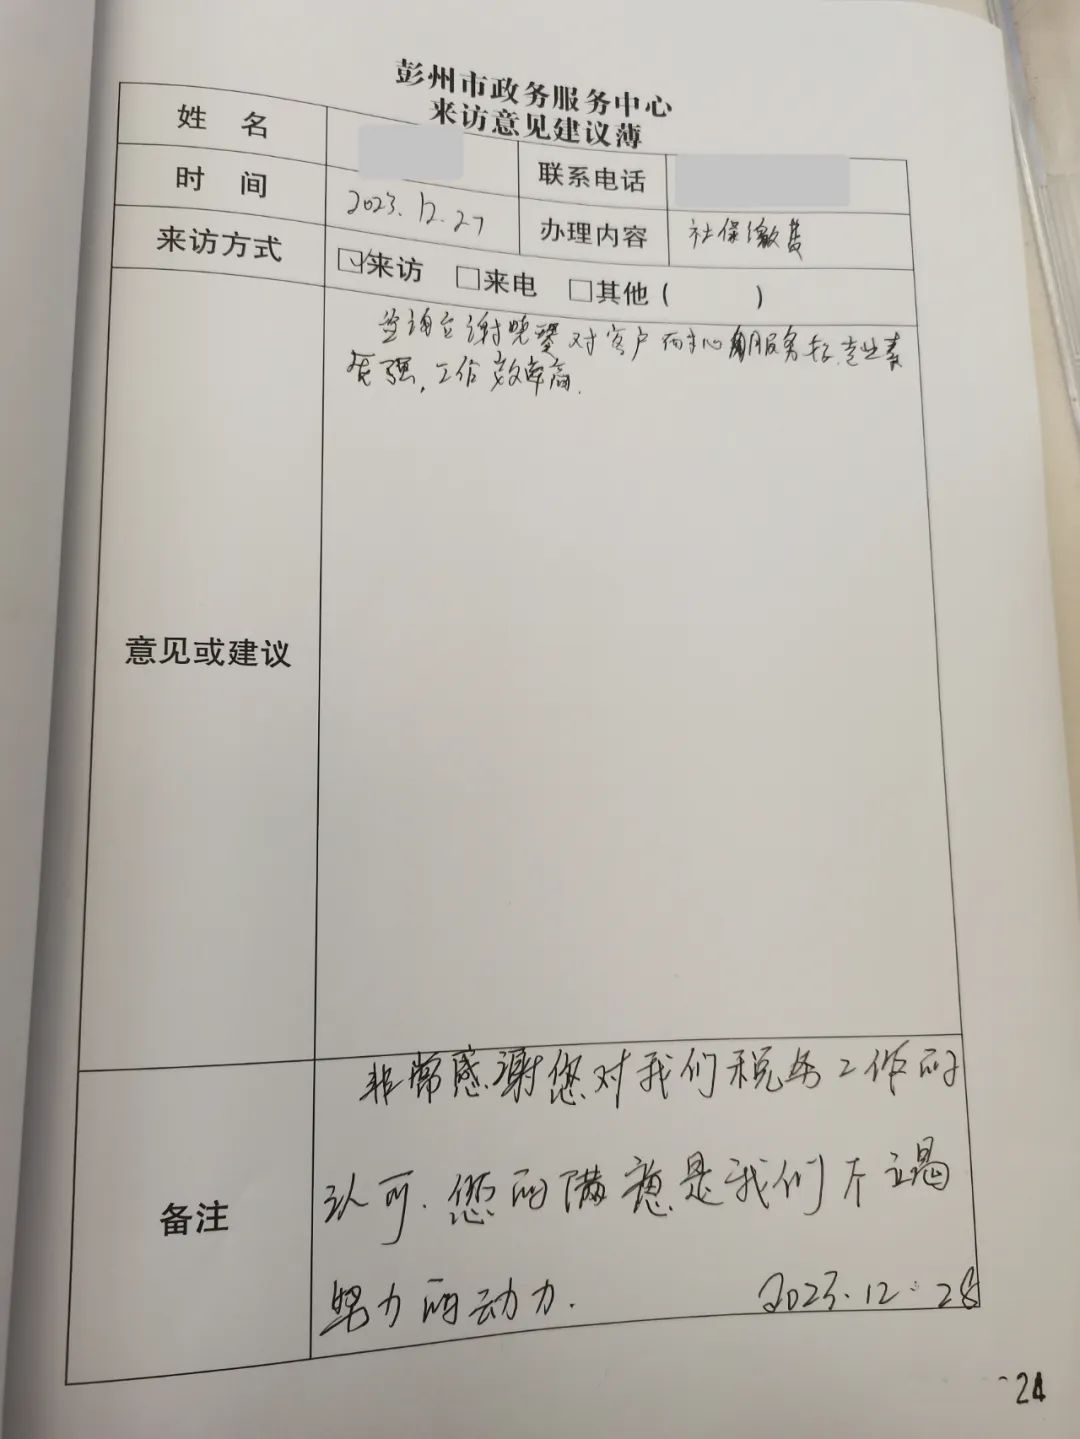 彭州市政务服务中心
来访意见建议薄
姓 名
联系电话
时 间
2023.12.27
办理内容
社保缴费
来访方式
☑来访 □来电 □其他（ ）
意见或建议
谢晓 对客户 服务 专业素
质强，工作效率高.
备注
非常感谢您对我们税务工作的
认可.您的满意是我们不竭
努力的动力.
2023.12.28
24